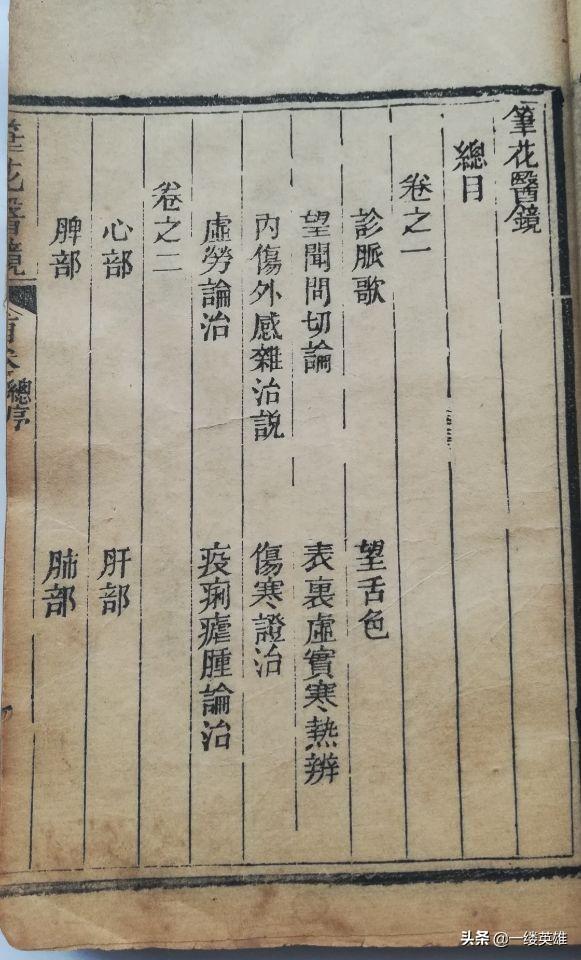 筆花醫鏡
總目
卷之一
診脈歌　望舌色
望聞問切論　表裏虛實寒熱辨
內傷外感雜治說　傷寒證治
虛勞論治　疫痢瘧腫論治
卷之二
心部　肝部
脾部　肺部
筆花醫鏡
總序
头条 @一缕英雄